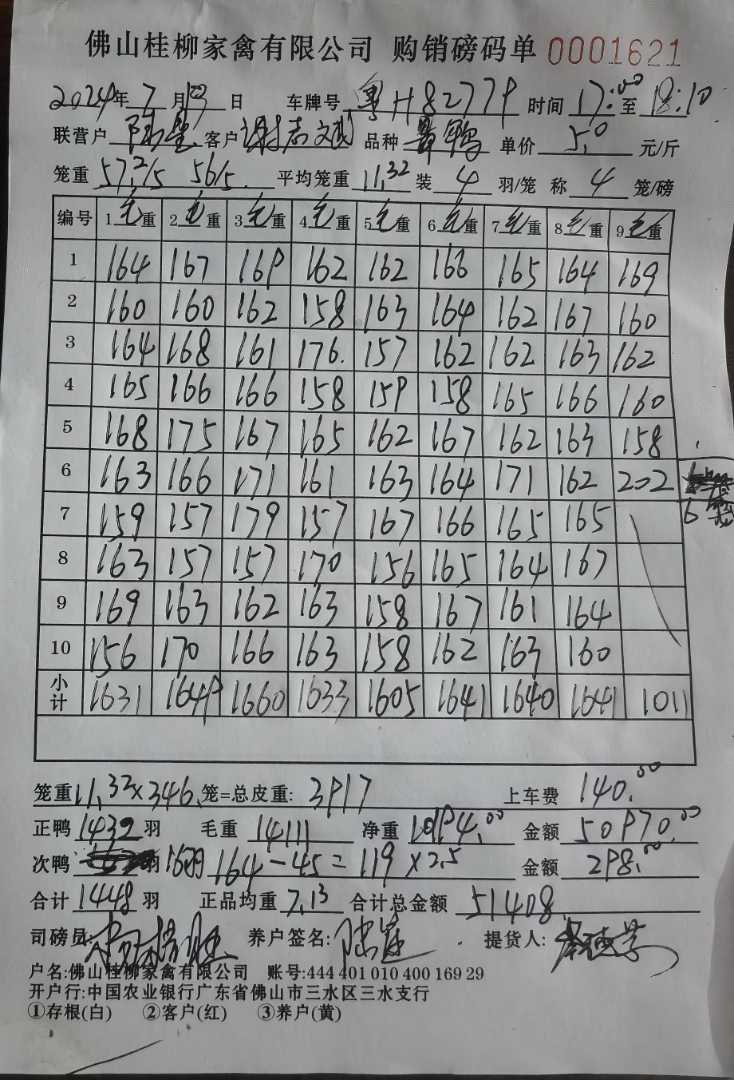 佛山桂柳家禽有限公司 购销磅码单 0001621
2024年 7 月 13 日 车牌号 粤H8277P 时间 17:00 至 18:10
联营户 客户 谢志文 品种 鸭 单价 5.0 元/斤
笼重 57.2/5 56/5 平均笼重 11.32 装 4 羽/笼 称 4 笼/磅
编号 1毛重 2毛重 3毛重 4毛重 5毛重 6毛重 7毛重 8毛重 9毛重
1 164 167 169 162 162 166 165 164 169
2 160 160 162 158 163 164 162 167 160
3 164 168 161 176. 157 162 162 163 162
4 165 166 166 158 159 158 165 166 160
5 168 175 167 165 162 167 162 163 158
6 163 166 171 161 163 164 171 162 202
7 159 157 179 157 167 166 165 165 6
8 163 157 157 170 156 165 164 167
9 169 163 162 163 158 167 161 164
10 156 170 166 163 158 162 163 160
小计 1631 1649 1660 1633 1605 1641 1640 1641 1011
笼重 11.32×346 笼=总皮重: 3917 上车费 140.00
正鸭 1432 羽 毛重 14111 净重 10194.00 金额 50970.00
次鸭 羽 16羽 164-45=119×2.5 金额 298.00
合计 1448 羽 正品均重 7.13 合计总金额 51408.
司磅员: 养户签名: 提货人:
户名:佛山桂柳家禽有限公司 账号:444 401 010 400 169 29
开户行:中国农业银行广东省佛山市三水区三水支行
①存根(白) ②客户(红) ③养户(黄)